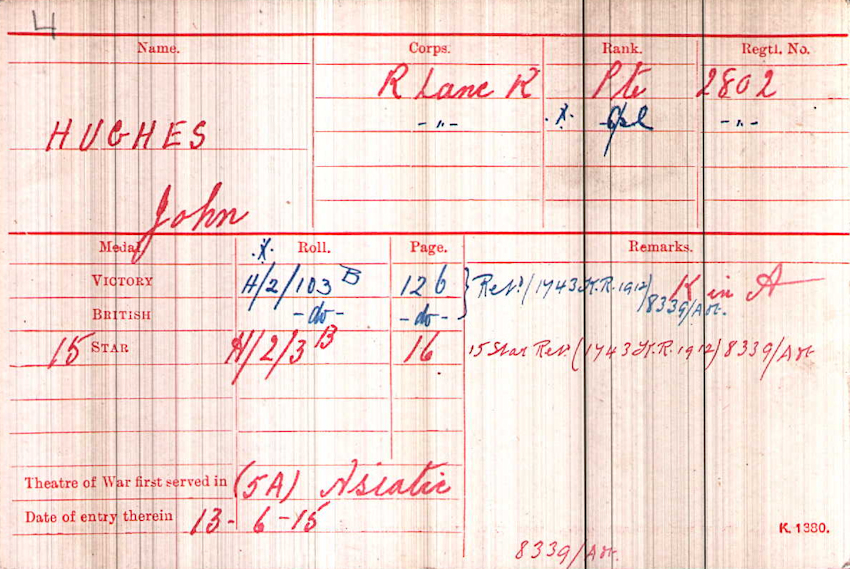 4
Name. Corps. Rank. Regtl. No.
R Lanc R Pte 2802
HUGHES -"- .X. Cpl -"-
John
Medal .X. Roll. Page. Remarks.
VICTORY H/2/103 B 126 } Retd (1743 K.R. 1912) K in A
BRITISH -do- -do- 8339/Adt.
15 STAR H/2/3 B 16 15 Star Retd (1743 K.R. 1912) 8339/Adt
Theatre of War first served in (5A) Asiatic
Date of entry therein 13-6-15
K. 1380.
8339/Adt.